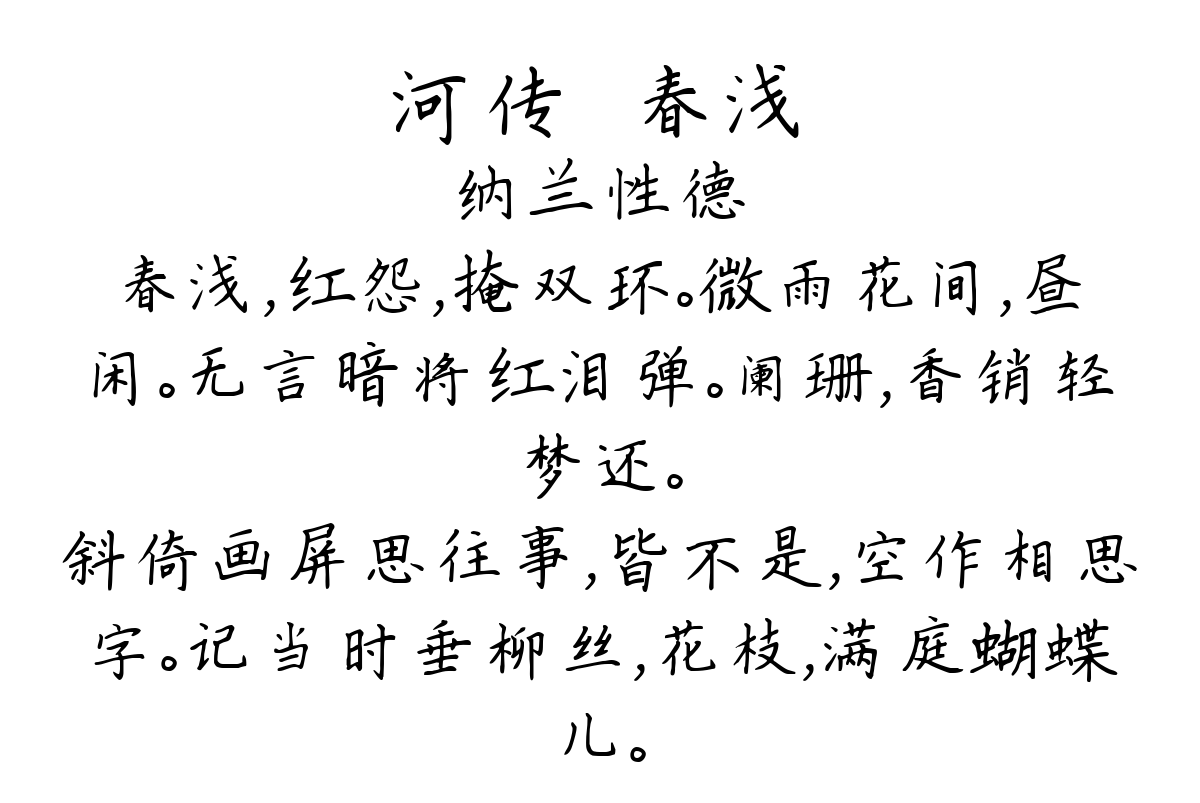 河传 春浅
纳兰性德
春浅,红怨,掩双环。微雨花间,昼
闲。无言暗将红泪弹。阑珊,香销轻
梦还。
斜倚画屏思往事,皆不是,空作相思
字。记当时垂柳丝,花枝,满庭蝴蝶
儿。